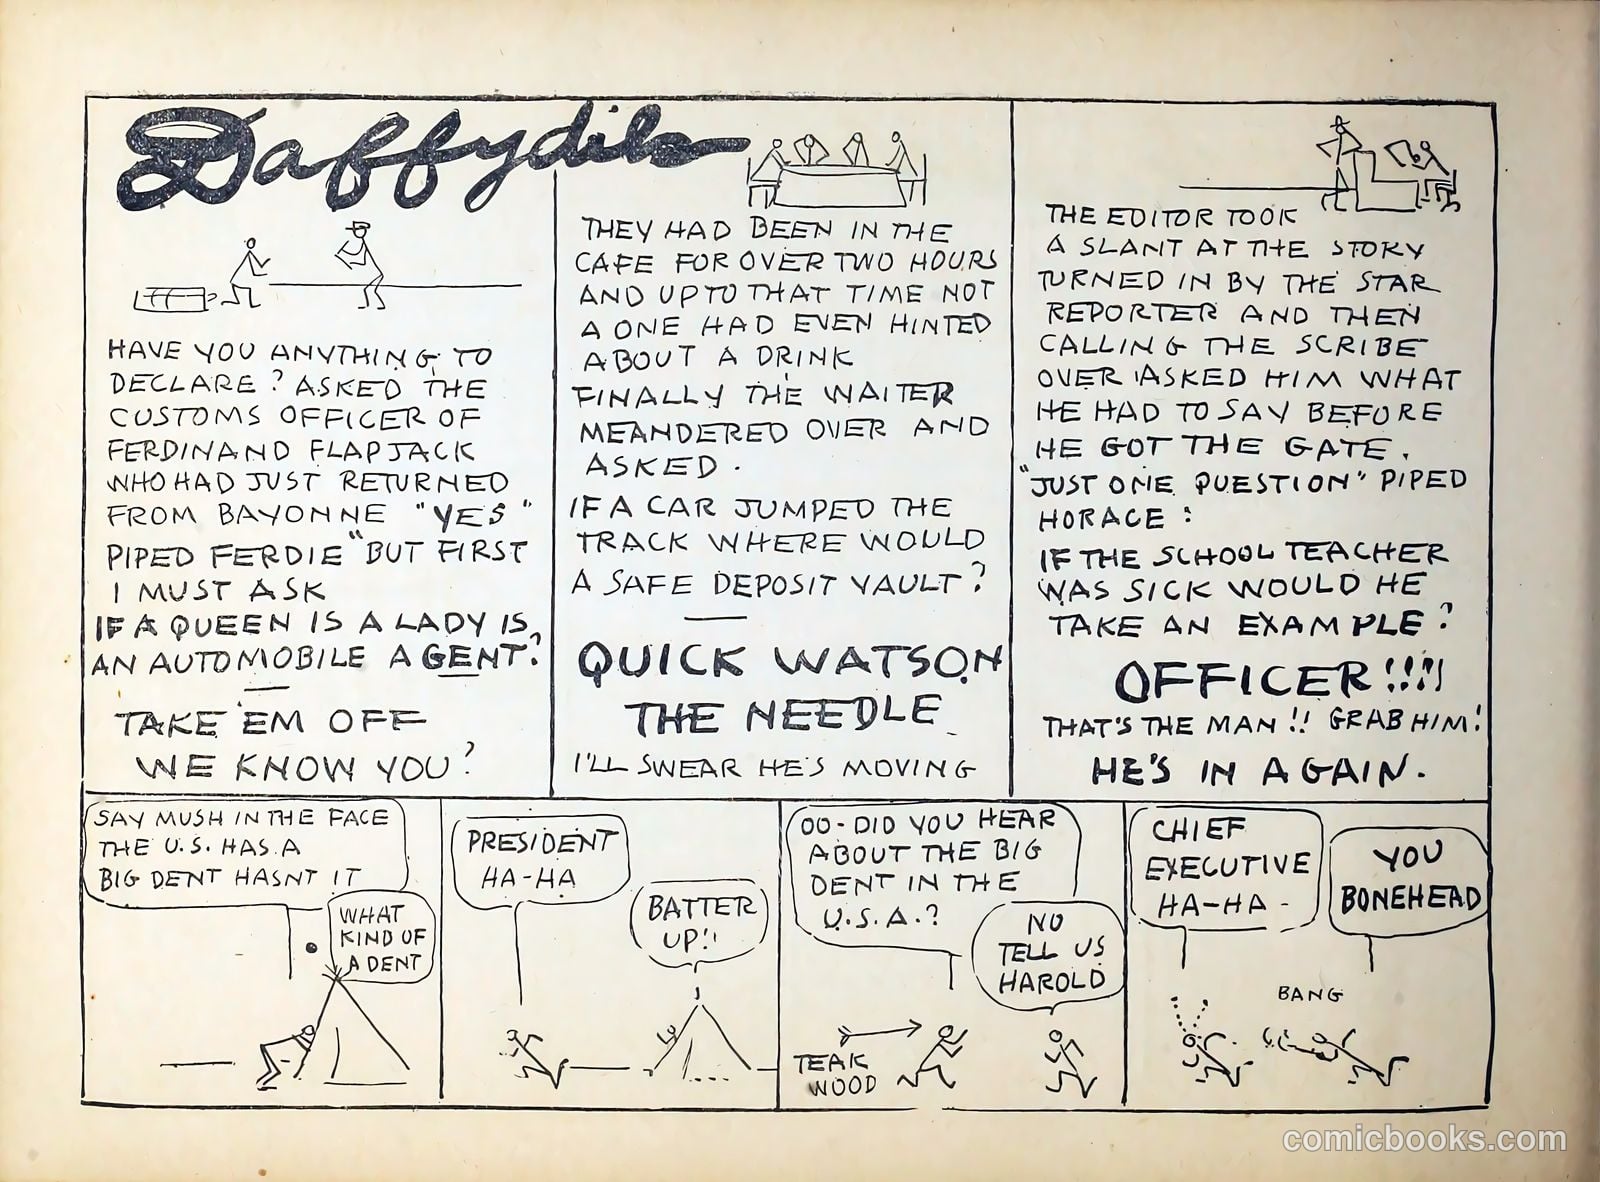 Daffydils
HAVE YOU ANYTHING TO
DECLARE? ASKED THE
CUSTOMS OFFICER OF
FERDINAND FLAPJACK
WHO HAD JUST RETURNED
FROM BAYONNE "YES"
PIPED FERDIE "BUT FIRST
I MUST ASK
IF A QUEEN IS A LADY IS
AN AUTOMOBILE A GENT?
TAKE 'EM OFF
WE KNOW YOU?
THEY HAD BEEN IN THE
CAFE FOR OVER TWO HOURS
AND UP TO THAT TIME NOT
A ONE HAD EVEN HINTED
ABOUT A DRINK
FINALLY THE WAITER
MEANDERED OVER AND
ASKED.
IF A CAR JUMPED THE
TRACK WHERE WOULD
A SAFE DEPOSIT VAULT?
QUICK WATSON
THE NEEDLE
I'LL SWEAR HE'S MOVING
THE EDITOR TOOK
A SLANT AT THE STORY
TURNED IN BY THE STAR
REPORTER AND THEN
CALLING THE SCRIBE
OVER ASKED HIM WHAT
HE HAD TO SAY BEFORE
HE GOT THE GATE.
"JUST ONE QUESTION" PIPED
HORACE:
IF THE SCHOOL TEACHER
WAS SICK WOULD HE
TAKE AN EXAMPLE?
OFFICER!!!!
THAT'S THE MAN!! GRAB HIM!
HE'S IN AGAIN.
SAY MUSH IN THE FACE
THE U.S. HAS A
BIG DENT HASNT IT
WHAT
KIND OF
A DENT
PRESIDENT
HA-HA
BATTER
UP!!
OO-DID YOU HEAR
ABOUT THE BIG
DENT IN THE
U.S.A.?
NO
TELL US
HAROLD
TEAK
WOOD
CHIEF
EXECUTIVE
HA-HA-
YOU
BONEHEAD
BANG
comicbooks.com